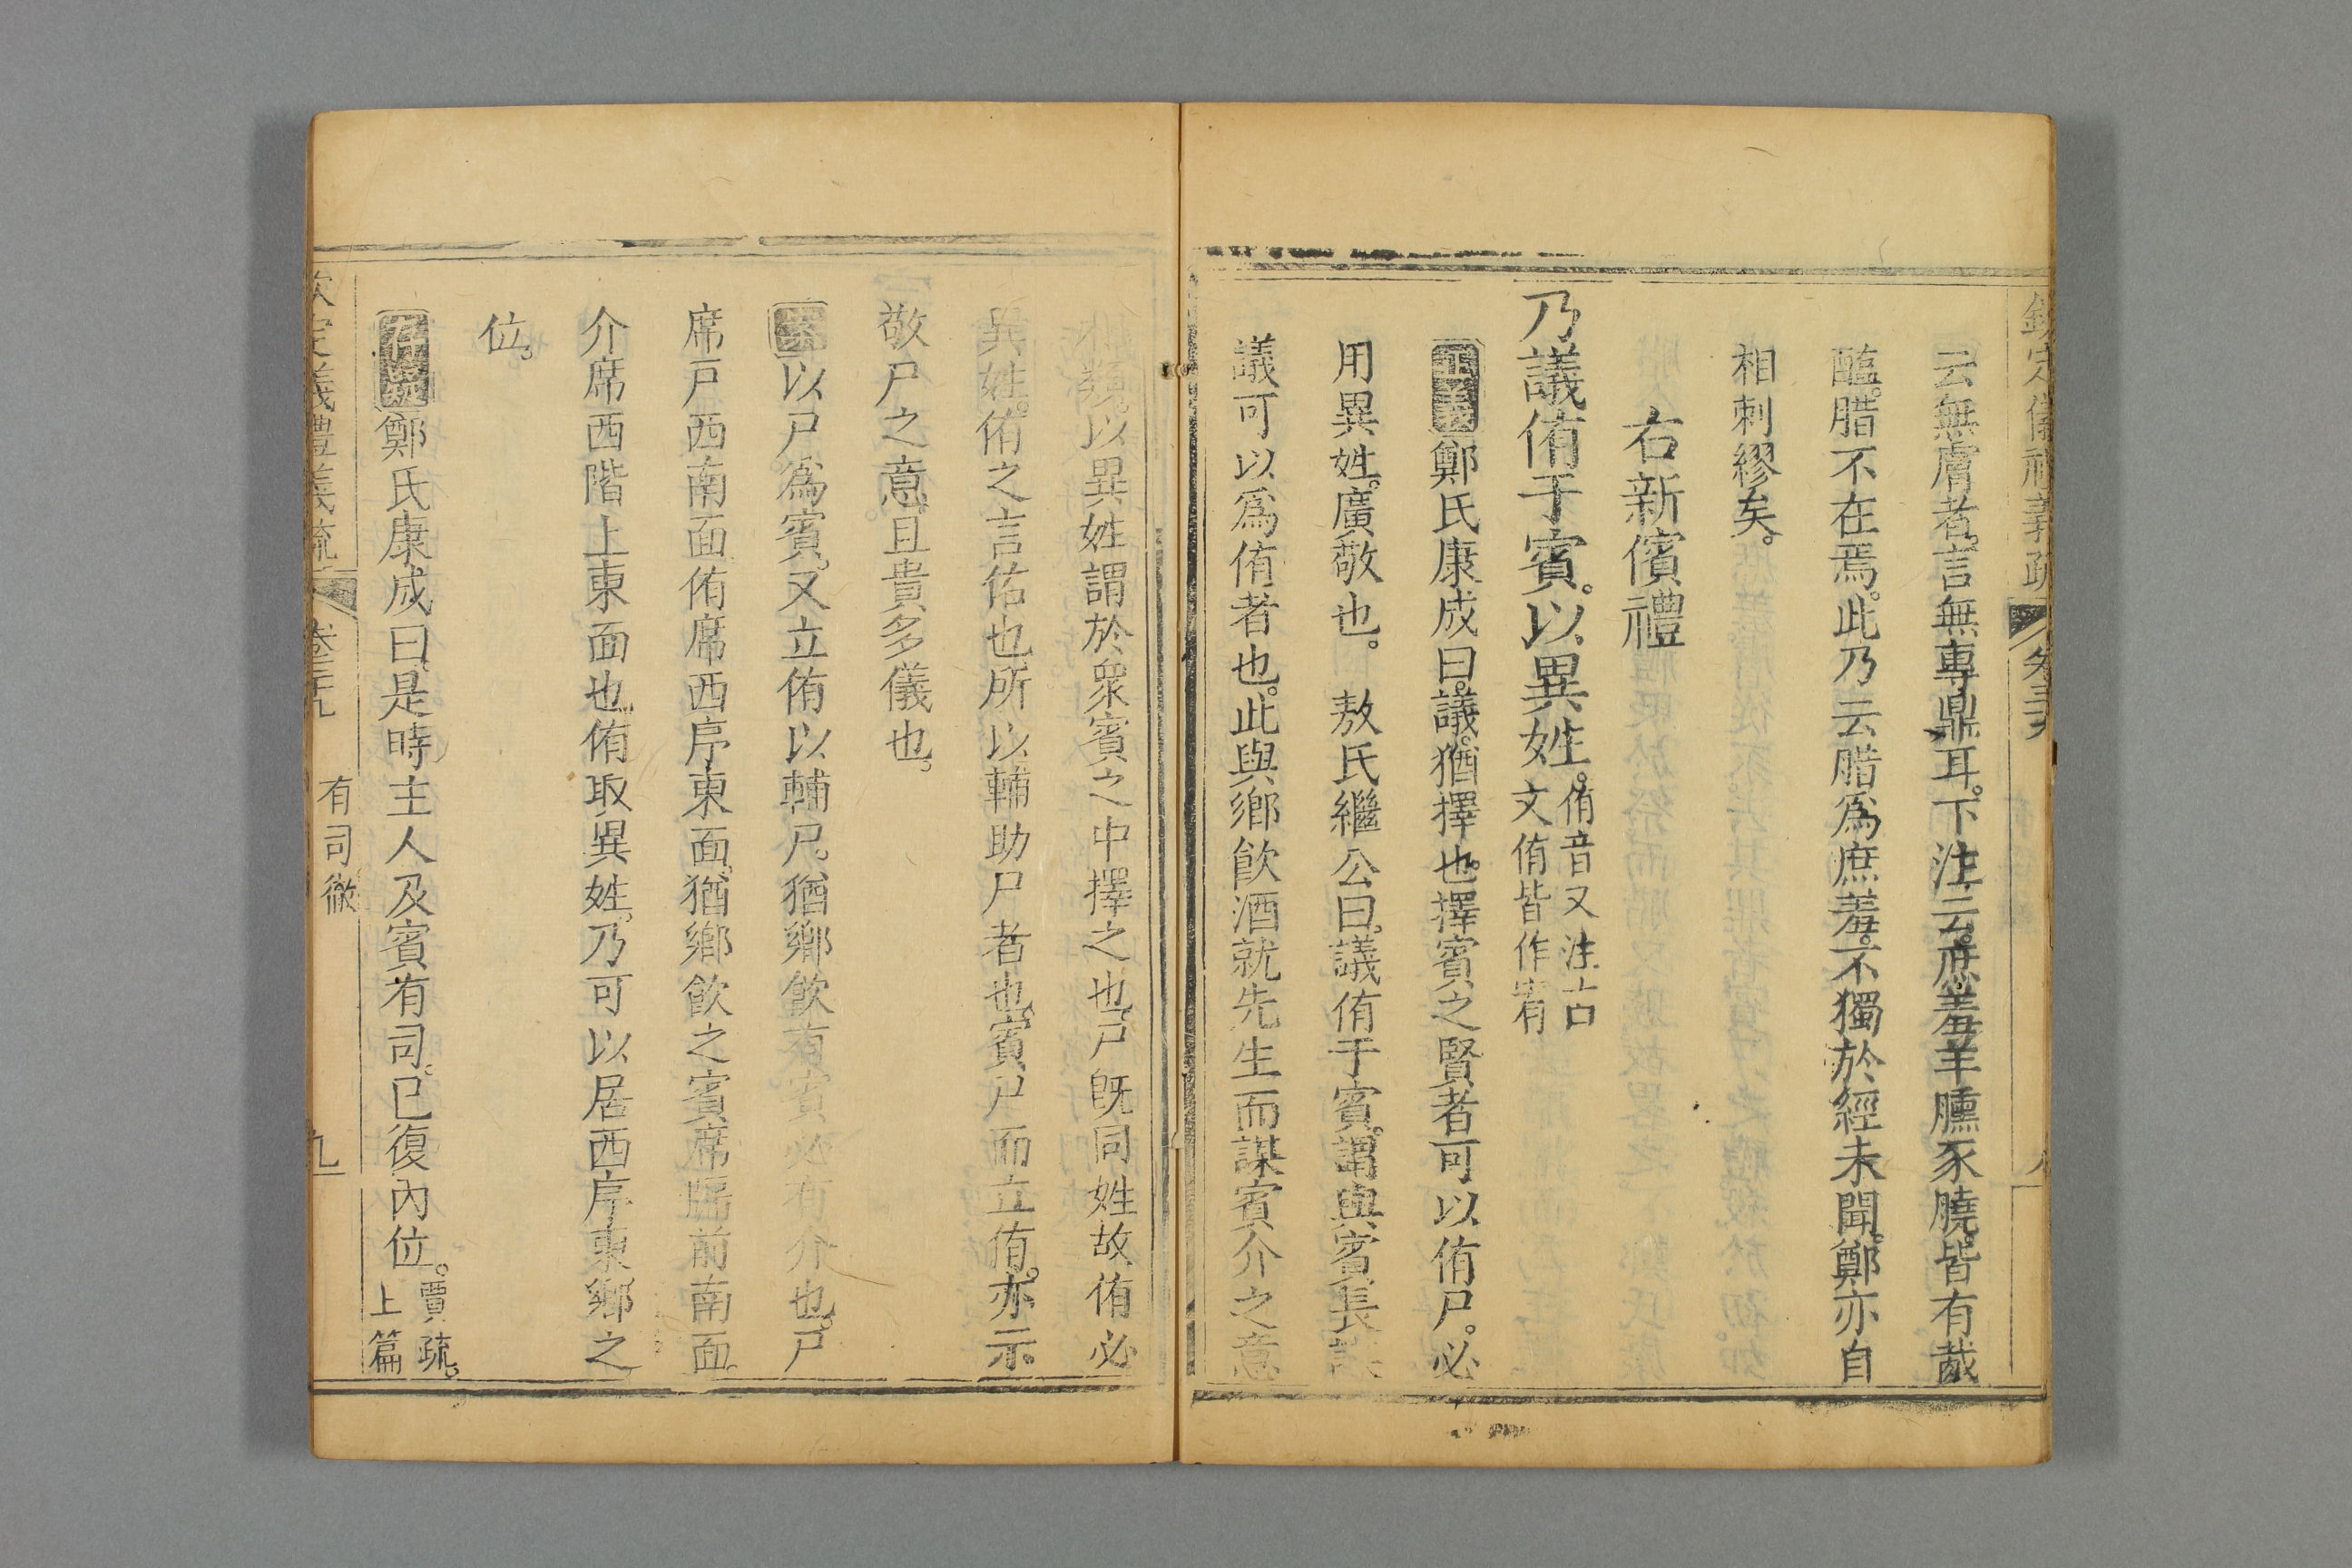 欽定儀禮義疏 卷三十九
云無膚者。言無專鼎耳。下注云。庶羞羊臐豕膮。皆有胾
醢。腊不在焉。此乃云腊爲庶羞。不獨於經未聞。鄭亦自
相刺繆矣。
右新儐禮
乃議侑于賓。以異姓。侑音又注古
文侑皆作宥
正義鄭氏康成曰。議。猶擇也。擇賓之賢者可以侑尸。必
用異姓。廣敬也。 敖氏繼公曰。議侑于賓。謂與賓長謀
議可以爲侑者也。此與鄉飮酒就先生而謀賓介之意
類。以異姓謂於衆賓之中擇之也。尸旣同姓故侑必
異姓。侑之言佑也所以輔助尸者也。賓尸而立侑。亦示
敬尸之意。且貴多儀也。
案以尸爲賓。又立侑以輔尸。猶鄉飮有賓必有介也。尸
席戸西南面侑席西序東面。猶鄉飮之賓席牖前南面。
介席西階上東面也。侑取異姓。乃可以居西序東鄉之
位。
存疑鄭氏康成曰。是時主人及賓有司。已復內位。賈疏。
上篇
欽定儀禮義疏 卷三十九 有司徹 九